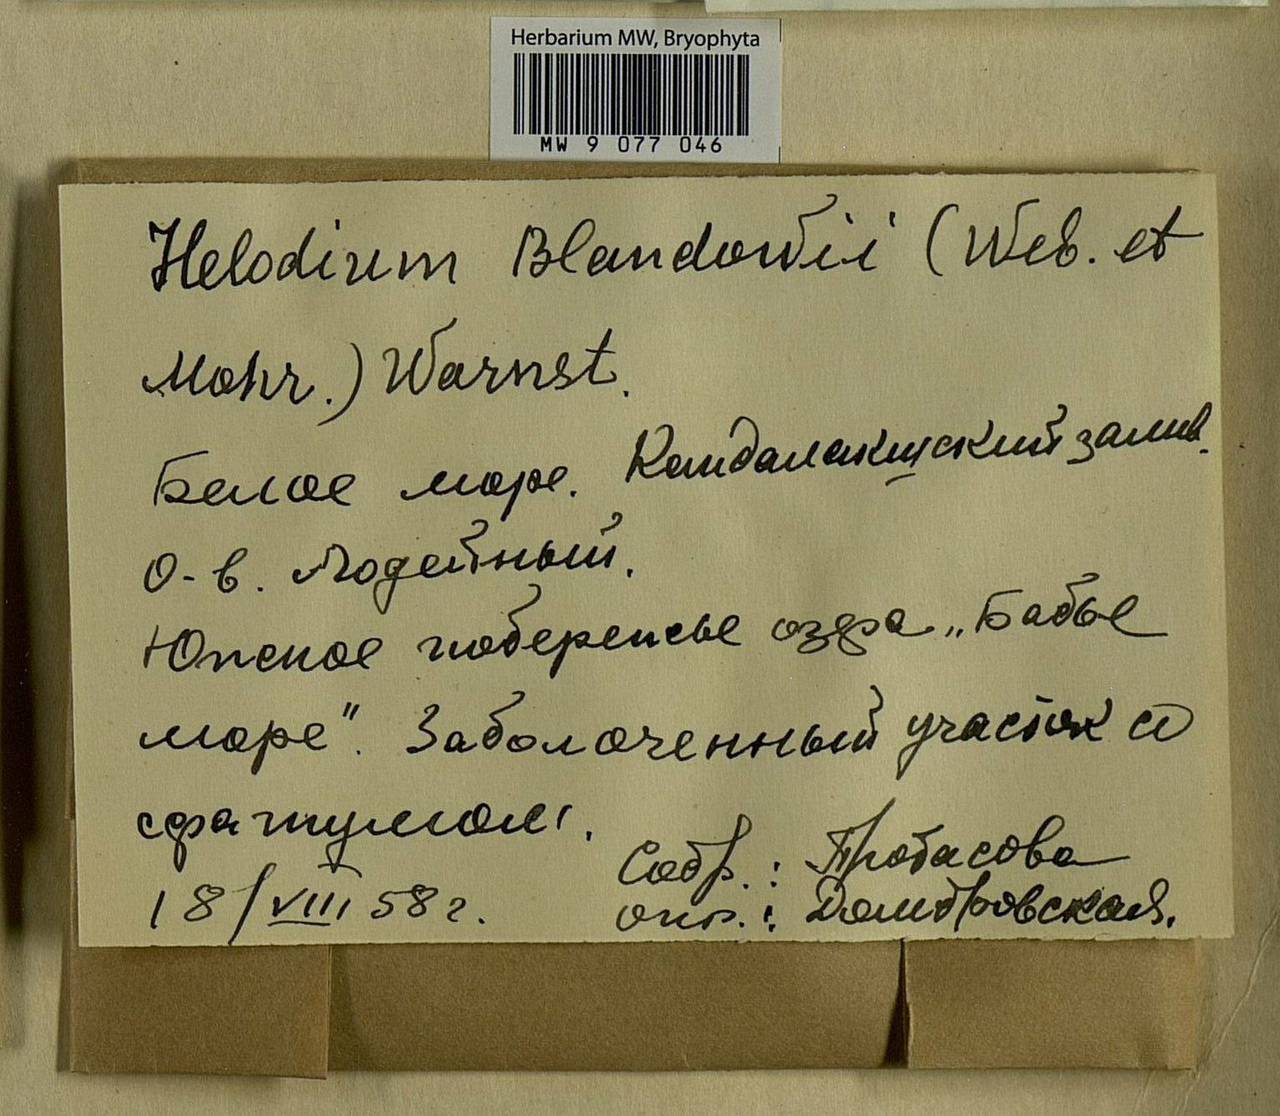 Herbarium MW, Bryophyta
MW 9 077 046
Helodium Blandowii (Web. et
Mohr.) Warnst.
Белое море. Кандалакшский залив.
О-в. Лодейный.
Южное побережье озера „Бабье
море". Заболоченный участок со
сфагнумом.
18/VIII 58 г.
Собр.: Протасова
опр.: Домбровская.